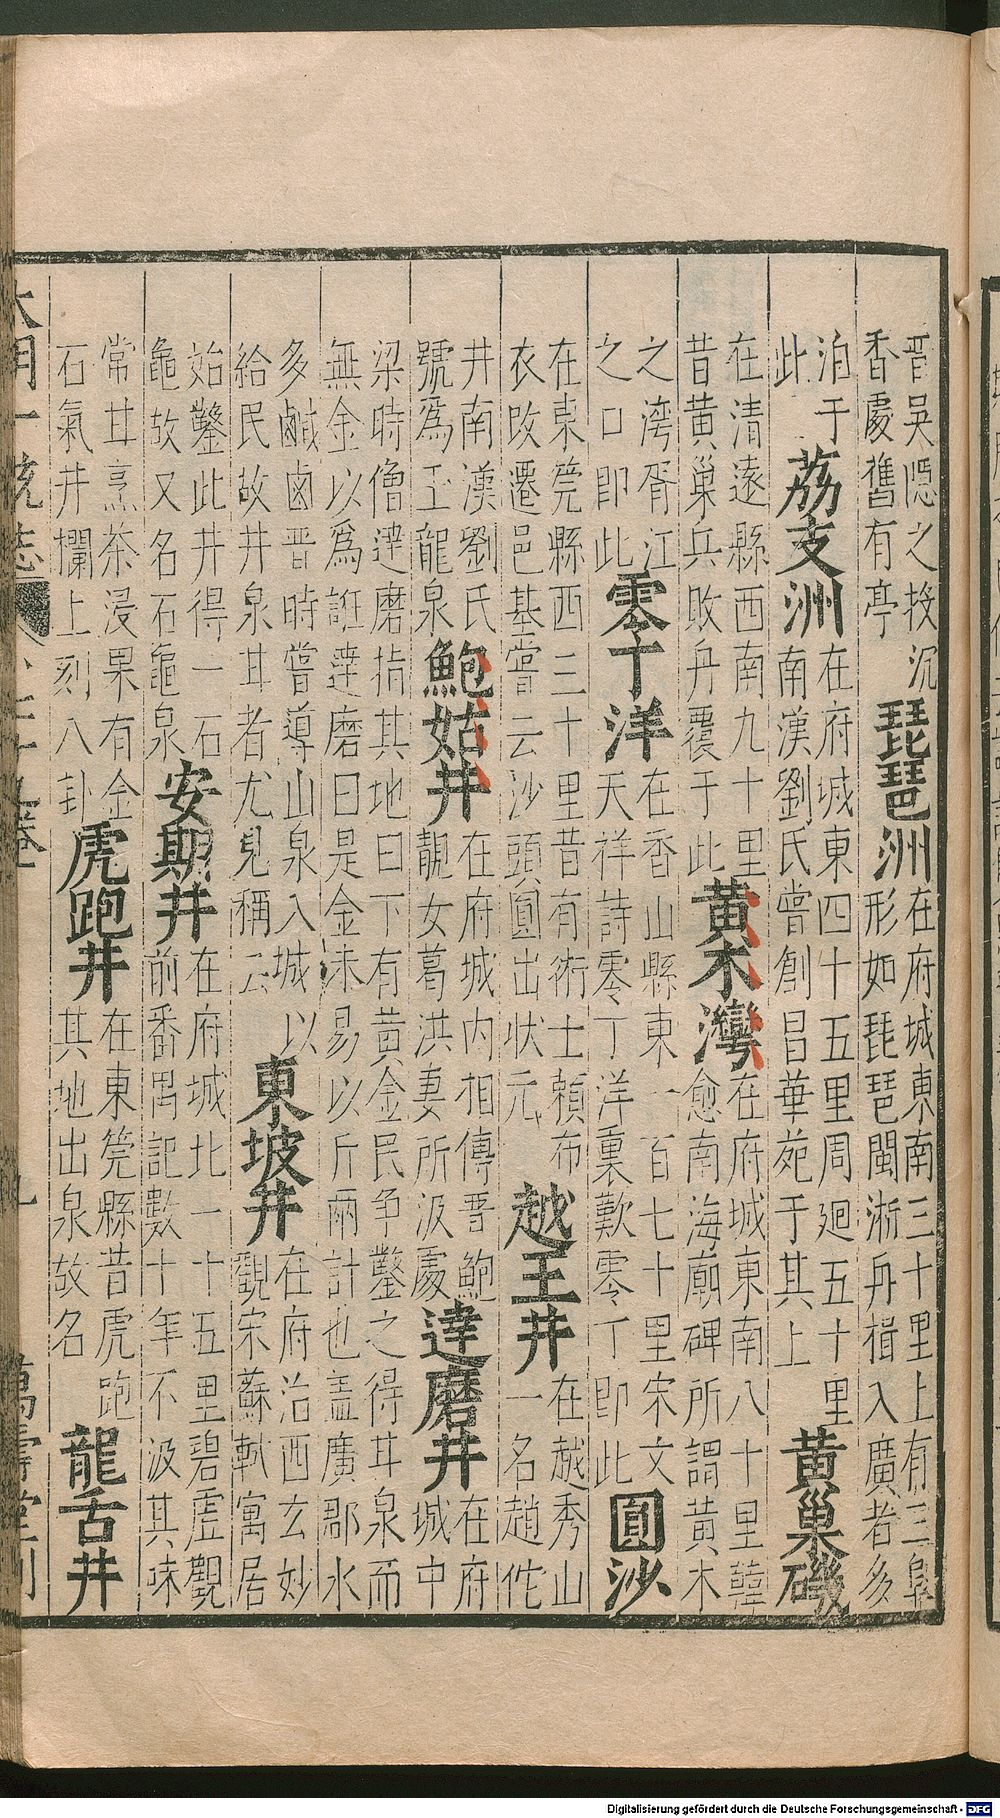 晋吳隱之投沉
香處舊有亭
琵琶洲
在府城東南三十里上有三阜
形如琵琶閩浙舟楫入廣者多
泊于
此
荔支洲
在府城東四十五里周廻五十里
南漢劉氏嘗創昌華苑于其上
黄巢磯
在清遠縣西南九十里
昔黄巢兵敗舟覆于此
黄木灣
在府城東南八十里韓
愈南海廟碑所謂黄木
之灣胥江
之口即此
零丁洋
在香山縣東一百七十里宋文
天祥詩零丁洋裏歎零丁即此
圓沙
在東筦縣西三十里昔有術士頼布
衣改遷邑基嘗云沙頭圓出状元
越王井
在越秀山
一名趙佗
井南漢劉氏
號爲玉龍泉
鮑姑井
在府城内相傳晋鮑
靚女葛洪妻所汲處
達磨井
在府
城中
梁時僧達磨指其地曰下有黄金民争鑿之得甘泉而
無金以爲誑達磨曰是金未易以斤兩計也盖廣郡水
多鹹鹵晋時嘗導山泉入城以
給民故井泉甘者尤見稱云
東坡井
在府治西玄妙
觀宋蘇軾寓居
始鑿此井得一石
龜故又名石龜泉
安期井
在府城北一十五里碧虚觀
前番禺記數十年不汲其味
常甘烹茶浸果有金
石氣井欄上刻八卦
虎跑井
在東筦縣昔虎跑
其地出泉故名
龍舌井
大明一統志
卷
九
萬壽堂刊
Digitalisierung gefördert durch die Deutsche Forschungsgemeinschaft - DFG